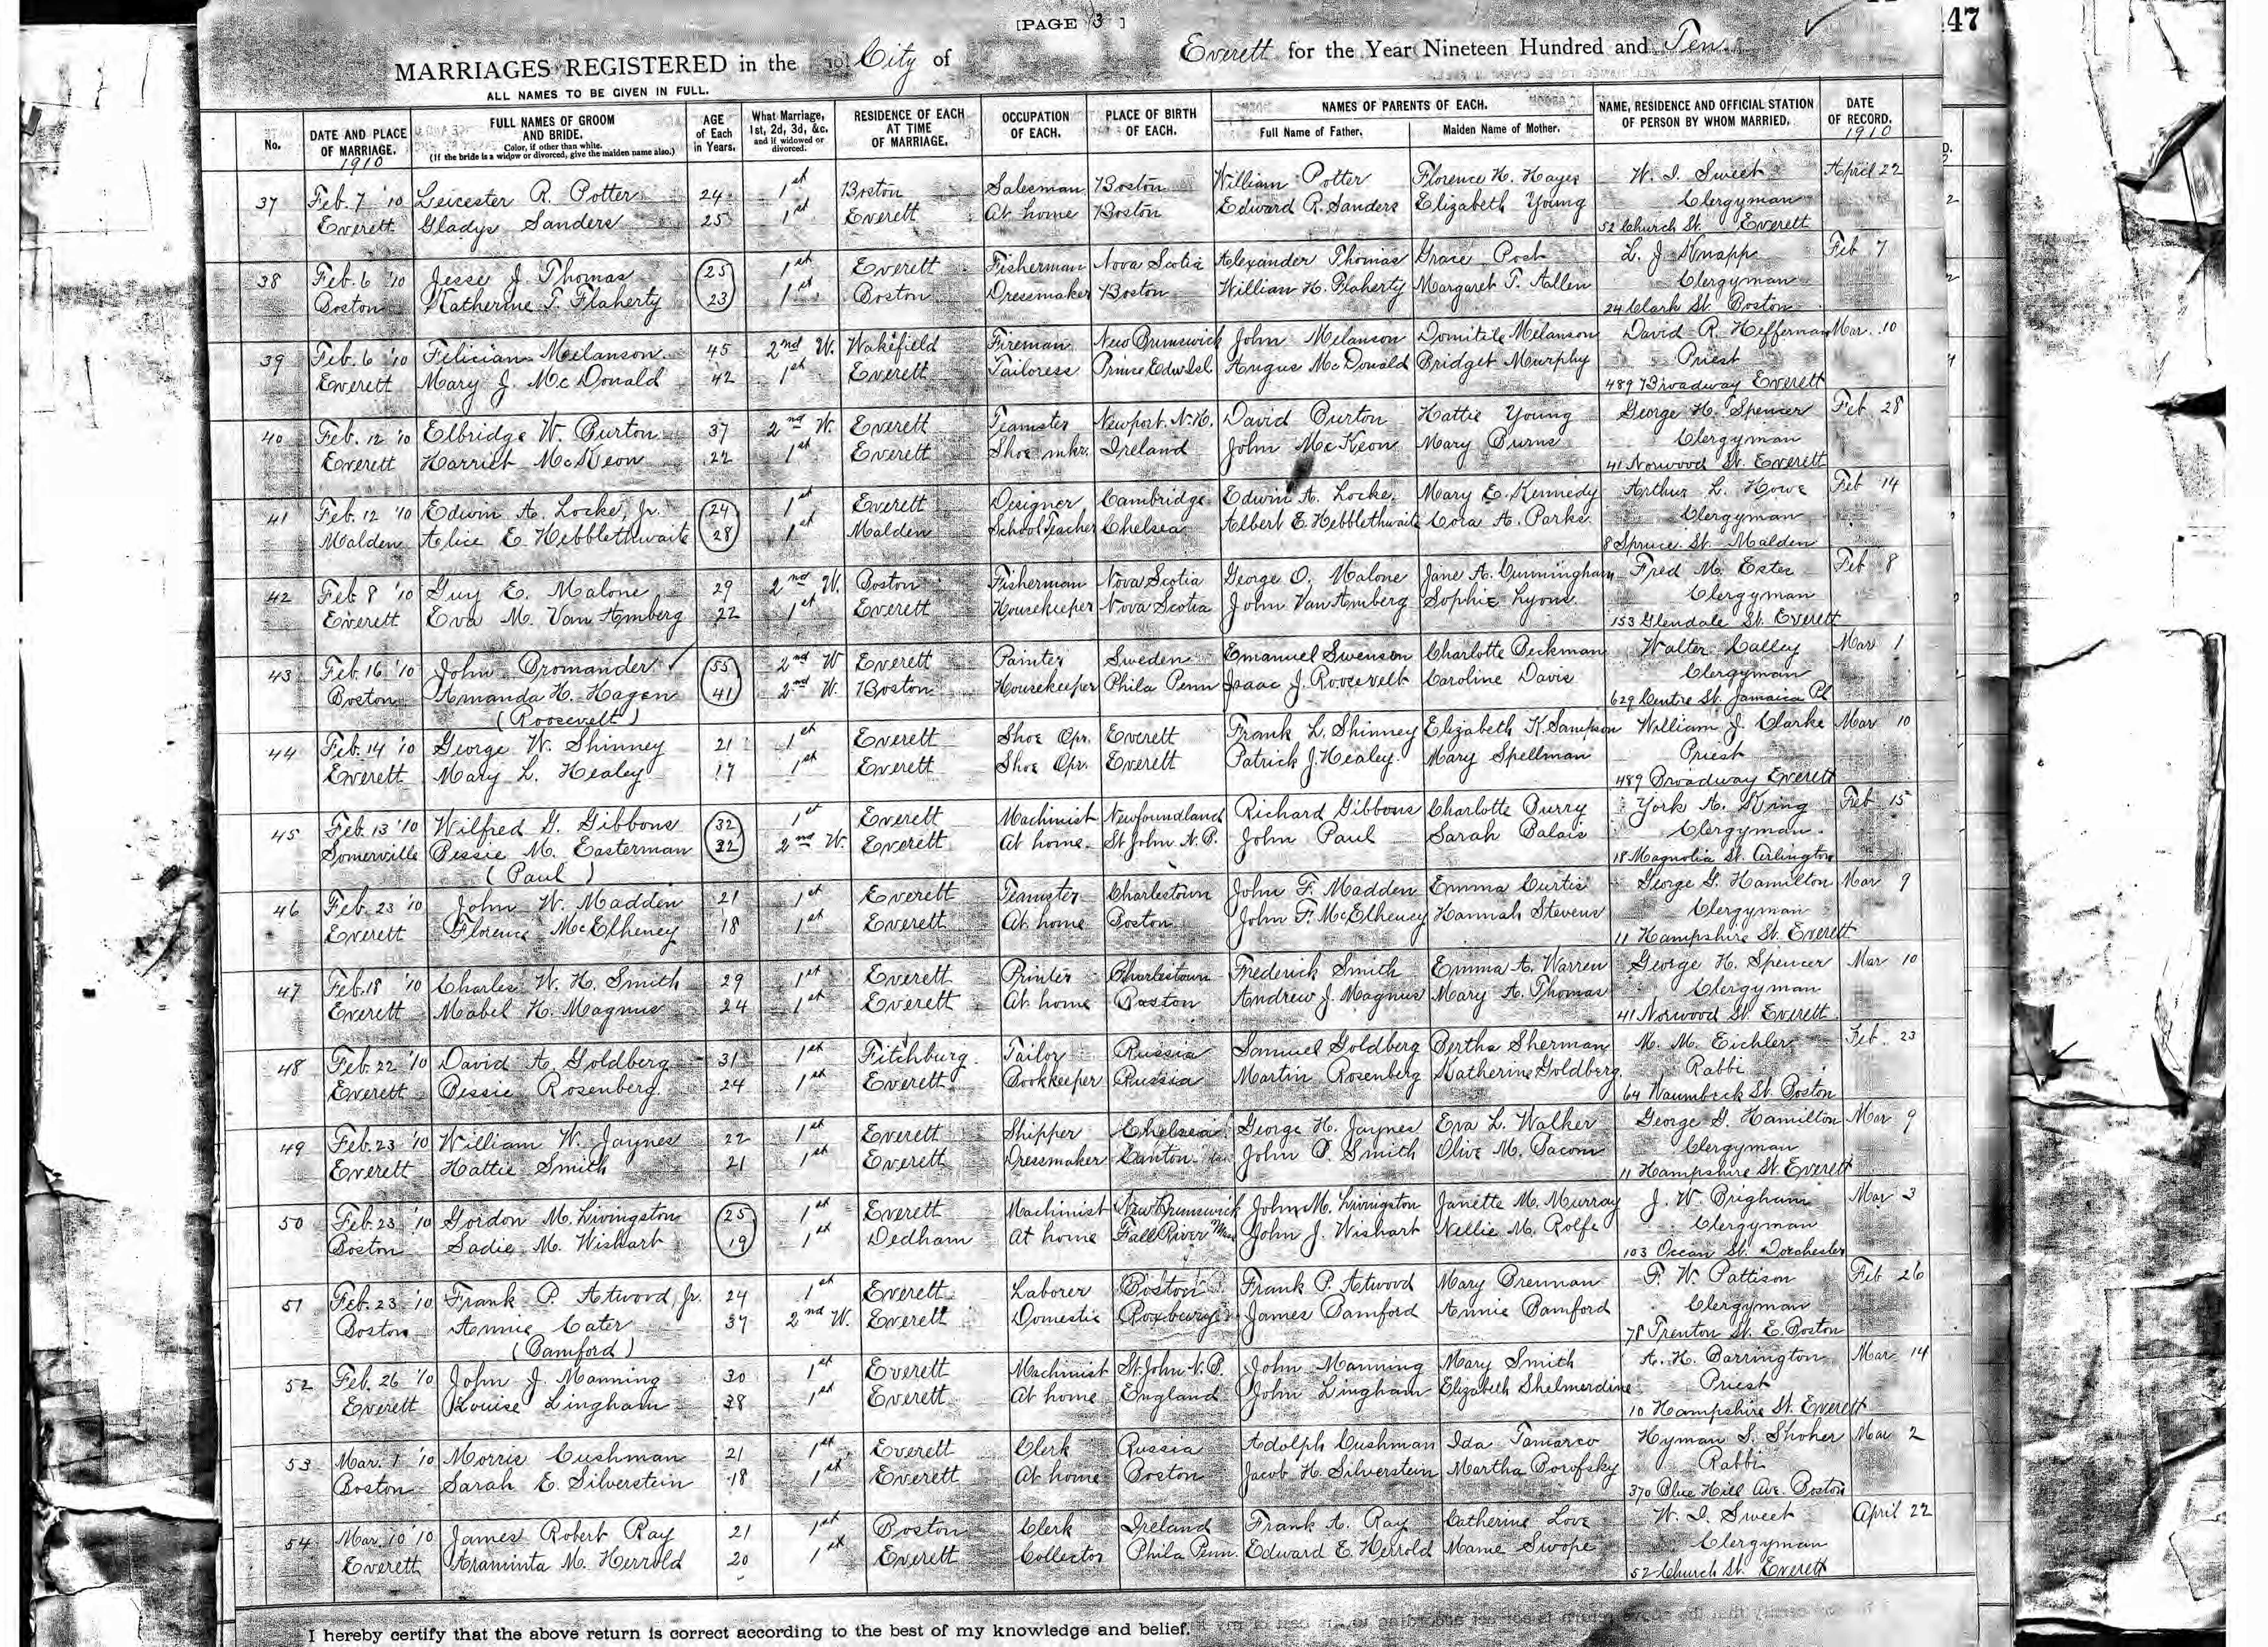 [PAGE 3 ]
47
MARRIAGES REGISTERED in the City of Everett for the Year Nineteen Hundred and Ten
ALL NAMES TO BE GIVEN IN FULL.
No. DATE AND PLACE OF MARRIAGE. 1910 FULL NAMES OF GROOM AND BRIDE. Color, if other than white. (If the bride is a widow or divorced, give the maiden name also.) AGE of Each in Years. What Marriage, 1st, 2d, 3d, &c. and if widowed or divorced. RESIDENCE OF EACH AT TIME OF MARRIAGE. OCCUPATION OF EACH. PLACE OF BIRTH OF EACH. NAMES OF PARENTS OF EACH. Full Name of Father. Maiden Name of Mother. NAME, RESIDENCE AND OFFICIAL STATION OF PERSON BY WHOM MARRIED. DATE OF RECORD. 1910
37 Feb. 7 '10 Leicester R. Potter 24 1st Boston Salesman Boston William Potter Florence H. Hayes W. I. Sweet April 22
Everett Gladys Sanders 25 1st Everett At home Boston Edward R. Sanders Elizabeth Young Clergyman
52 Church St. Everett
38 Feb. 6 '10 Jesse J. Thomas 25 1st Everett Fisherman Nova Scotia Alexander Thomas Grace Post L. J. Knapp Feb 7
Boston Katherine T. Flaherty 23 1st Boston Dressmaker Boston William H. Flaherty Margaret T. Allen Clergyman
24 Clark St. Boston
39 Feb. 6 '10 Felician Melanson 45 2nd W. Wakefield Fireman New Brunswick John Melanson Domitile Melanson David R. Heffernan Mar. 10
Everett Mary J. McDonald 42 1st Everett Tailoress Prince Edw Isl. Angus McDonald Bridget Murphy Priest
489 Broadway Everett
40 Feb. 12 '10 Elbridge W. Burton 37 2nd W. Everett Teamster Newport. N.H. David Burton Hattie Young George H. Spencer Feb. 28
Everett Harriet McKeon 22 1st Everett Shoe mkr. Ireland John McKeon Mary Burns Clergyman
41 Norwood St. Everett
41 Feb. 12 '10 Edwin A. Locke, Jr. 24 1st Everett Designer Cambridge Edwin A. Locke, Mary E. Kennedy Arthur L. Howe Feb 14
Malden Alice E. Hebblethwaite 28 1st Malden School Teacher Chelsea Albert E. Hebblethwaite Cora A. Parks Clergyman
8 Spruce St. Malden
42 Feb 8 '10 Guy E. Malone 29 2nd W. Boston Fisherman Nova Scotia George O. Malone Jane A. Cunningham Fred M. Estes Feb 8
Everett Eva M. Van Amberg 22 1st Everett Housekeeper Nova Scotia John Van Amberg Sophie Lyons Clergyman
153 Glendale St. Everett
43 Feb. 16 '10 John Bromander 55 2nd W Everett Painter Sweden Emanuel Swenson Charlotte Beckman Walter Calley Mar 1
Boston Amanda H. Hagen 41 2nd W. Boston Housekeeper Phila Penn Isaac J. Roosevelt Caroline Davis Clergyman
(Roosevelt) 629 Centre St. Jamaica Pl
44 Feb. 14 '10 George W. Shinney 21 1st Everett Shoe Opr. Everett Frank L. Shinney Elizabeth K. Sampson William J. Clarke Mar 10
Everett Mary L. Healey 17 1st Everett Shoe Opr. Everett Patrick J. Healey Mary Spellman Priest
489 Broadway Everett
45 Feb. 13 '10 Wilfred G. Gibbons 32 1st Everett Machinist Newfoundland Richard Gibbons Charlotte Burry York A. King Feb 15
Somerville Bessie M. Easterman 32 2nd W. Everett At home St John N.B. John Paul Sarah Balais Clergyman
(Paul) 18 Magnolia St. Arlington
46 Feb. 23 '10 John W. Madden 21 1st Everett Teamster Charlestown John F. Madden Emma Curtis George G. Hamilton Mar 9
Everett Florence McElheney 18 1st Everett At home Boston John F. McElheney Hannah Stevens Clergyman
11 Hampshire St. Everett
47 Feb. 18 '10 Charles W. H. Smith 29 1st Everett Printer Charlestown Frederick Smith Emma A. Warren George H. Spencer Mar 10
Everett Mabel H. Magnus 24 1st Everett At home Boston Andrew J. Magnus Mary A. Thomas Clergyman
41 Norwood St. Everett
48 Feb. 22 '10 David A. Goldberg 31 1st Fitchburg. Tailor Russia Samuel Goldberg Bertha Sherman M. M. Eichler Feb. 23
Everett Bessie Rosenberg 24 1st Everett Bookkeeper Russia Martin Rosenberg Katherine Goldberg Rabbi
64 Waumbeck St. Boston
49 Feb. 23 '10 William W. Jaynes 22 1st Everett Shipper Chelsea George H. Jaynes Eva L. Walker George G. Hamilton Mar 9
Everett Hattie Smith 21 1st Everett Dressmaker Canton John P. Smith Olive M. Bacom Clergyman
11 Hampshire St. Everett
50 Feb. 23 '10 Gordon M. Livingston 25 1st Everett Machinist New Brunswick John M. Livingston Janette M. Murray J. W. Brigham Mar 3
Boston Sadie M. Wishart 19 1st Dedham At home Fall River Mass John J. Wishart Nellie M. Rolfe Clergyman
103 Ocean St. Dorchester
51 Feb. 23 '10 Frank P. Atwood, Jr. 24 1st Everett Laborer Boston Frank P. Atwood Mary Brennan F. W. Pattison Feb 26
Boston Annie Cater 37 2nd W. Everett Domestic Roxbury James Bamford Annie Bamford Clergyman
(Bamford) 78 Trenton St. E. Boston
52 Feb. 26 '10 John J. Manning 30 1st Everett Machinist St. John N.B. John Manning Mary Smith A. H. Barrington Mar 14
Everett Louise Lingham 38 1st Everett At home England John Lingham Elizabeth Shelmerdine Priest
10 Hampshire St. Everett
53 Mar. 1 '10 Morris Cushman 21 1st Everett Clerk Russia Adolph Cushman Ida Tamarco Hyman S. Shoher Mar 2
Boston Sarah E. Silverstein 18 1st Everett At home Boston Jacob H. Silverstein Martha Borofsky Rabbi
370 Blue Hill Ave. Boston
54 Mar. 10 '10 James Robert Ray 21 1st Boston Clerk Ireland Frank A. Ray Catherine Love W. I. Sweet April 22
Everett Araminta M. Herrold 20 1st Everett Collector Phila Penn. Edward E. Herrold Mame Swope Clergyman
52 Church St. Everett
I hereby certify that the above return is correct according to the best of my knowledge and belief.